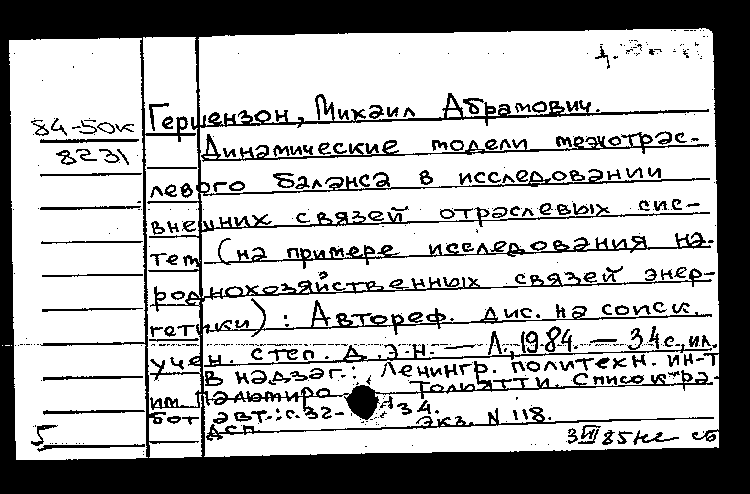 84-50к
8231
Гершензон, Михаил Абрамович.
Динамические модели межотрас-
левого баланса в исследовании
внешних связей отраслевых сис-
тем (на примере исследования на-
роднохозяйственных связей энер-
гетики) : Автореф. дис. на соиск.
учен. степ. д.э.н. — Л., 1984. — 34 с., ил.
В надзаг.: Ленингр. политехн. ин-т
им. Пальмиро Тольятти. Список ра-
бот авт.: с. 32-34.
ДСП Экз. N 118.
5